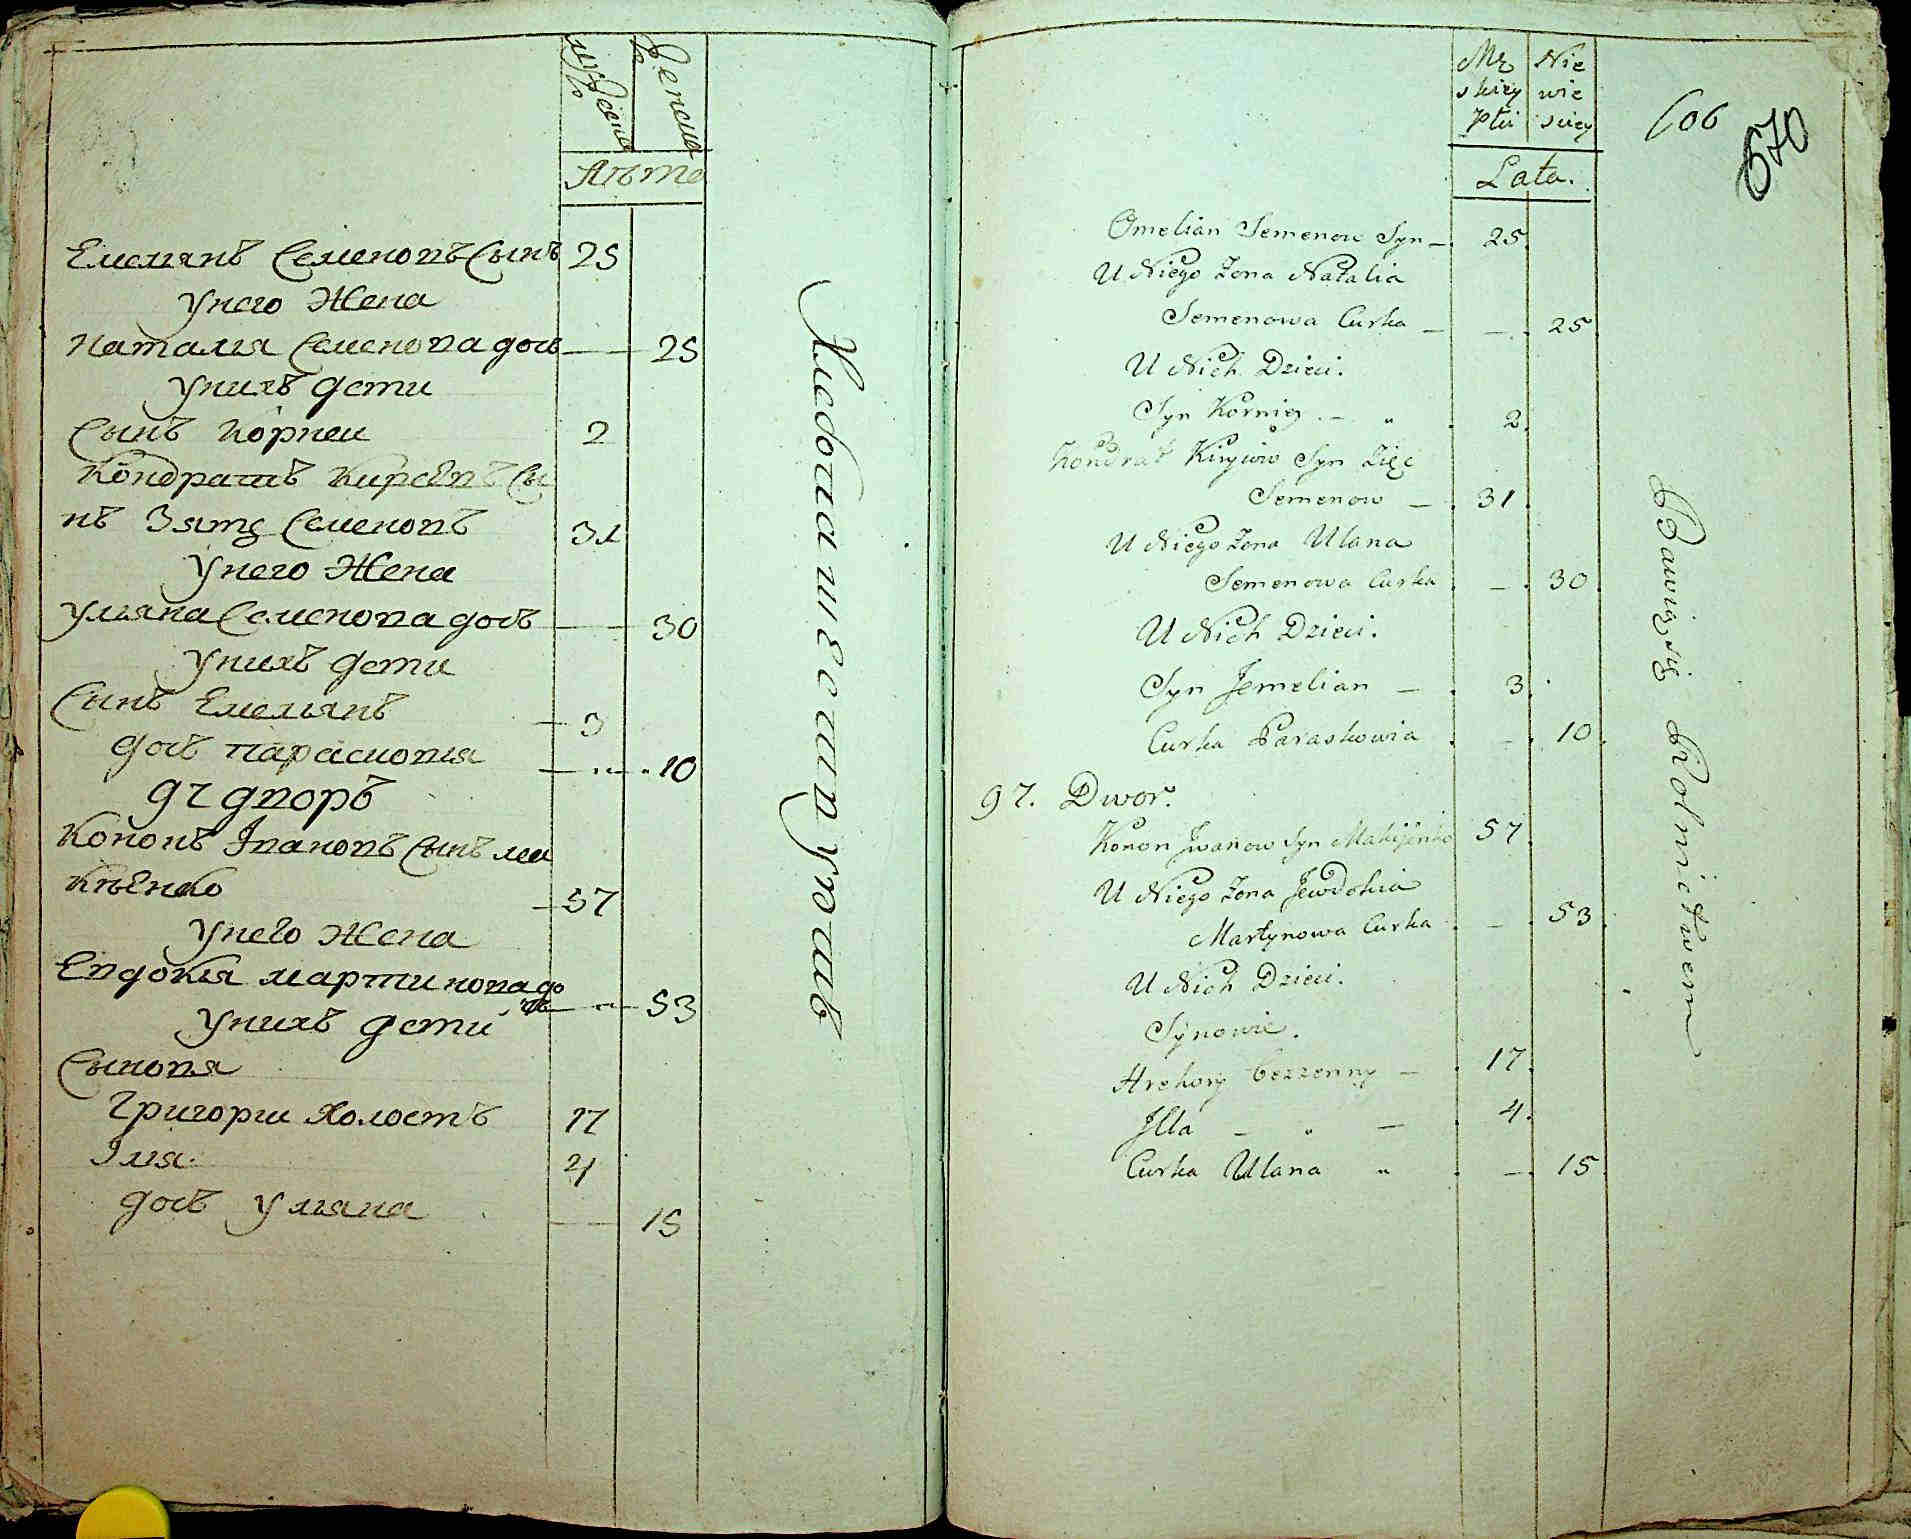 мужеска
женска
Лѣта
Емелянъ Семеновъ Сынъ 25
Унего Жена
Наталія Семенова дочь — 25
Унихъ дети
Сынъ Корнеи 2
Кондратъ Кирѣевъ Сы
нъ Зять Семеновъ 31
Унего Жена
Уліана Семенова дочь — 30
Унихъ дети
Сынъ Емельянъ — 3
дочь Парасковія — 10
97 дворъ
Кононъ Івановъ Сынъ Ма
кѣенко — 57
Унего Жена
Евдокія Мартинова до
чь — 53
Унихъ дети
Сыновя
Григорги Холостъ 17
Ілія 4
дочь Уліана — 15
Хлебопашествуютъ
Męz
skiey
Płci
Nie
wie
sciey
Lata.
606
670
Omelian Semenow Syn — 25.
U Niego Zona Natalia
Semenowa Curka — — 25
U Nich Dzieci.
Syn Korniey — " 2.
Kondrat Kiryiow Syn Zięć
Semenow — 31.
U Niego Zona Ulana
Semenowa Curka — 30
U Nich Dzieci.
Syn Jemelian — 3.
Curka Paraskowia — 10
97. Dwor.
Konon Jwanow Syn Makijenko 57.
U Niego Zona Jewdokia
Martynowa Curka — 53
U Nich Dzieci.
Synowie.
Hrehory bezzenny — 17.
Jlla — " — 4.
Curka Ulana " — 15
Bawią się Rolnictwem